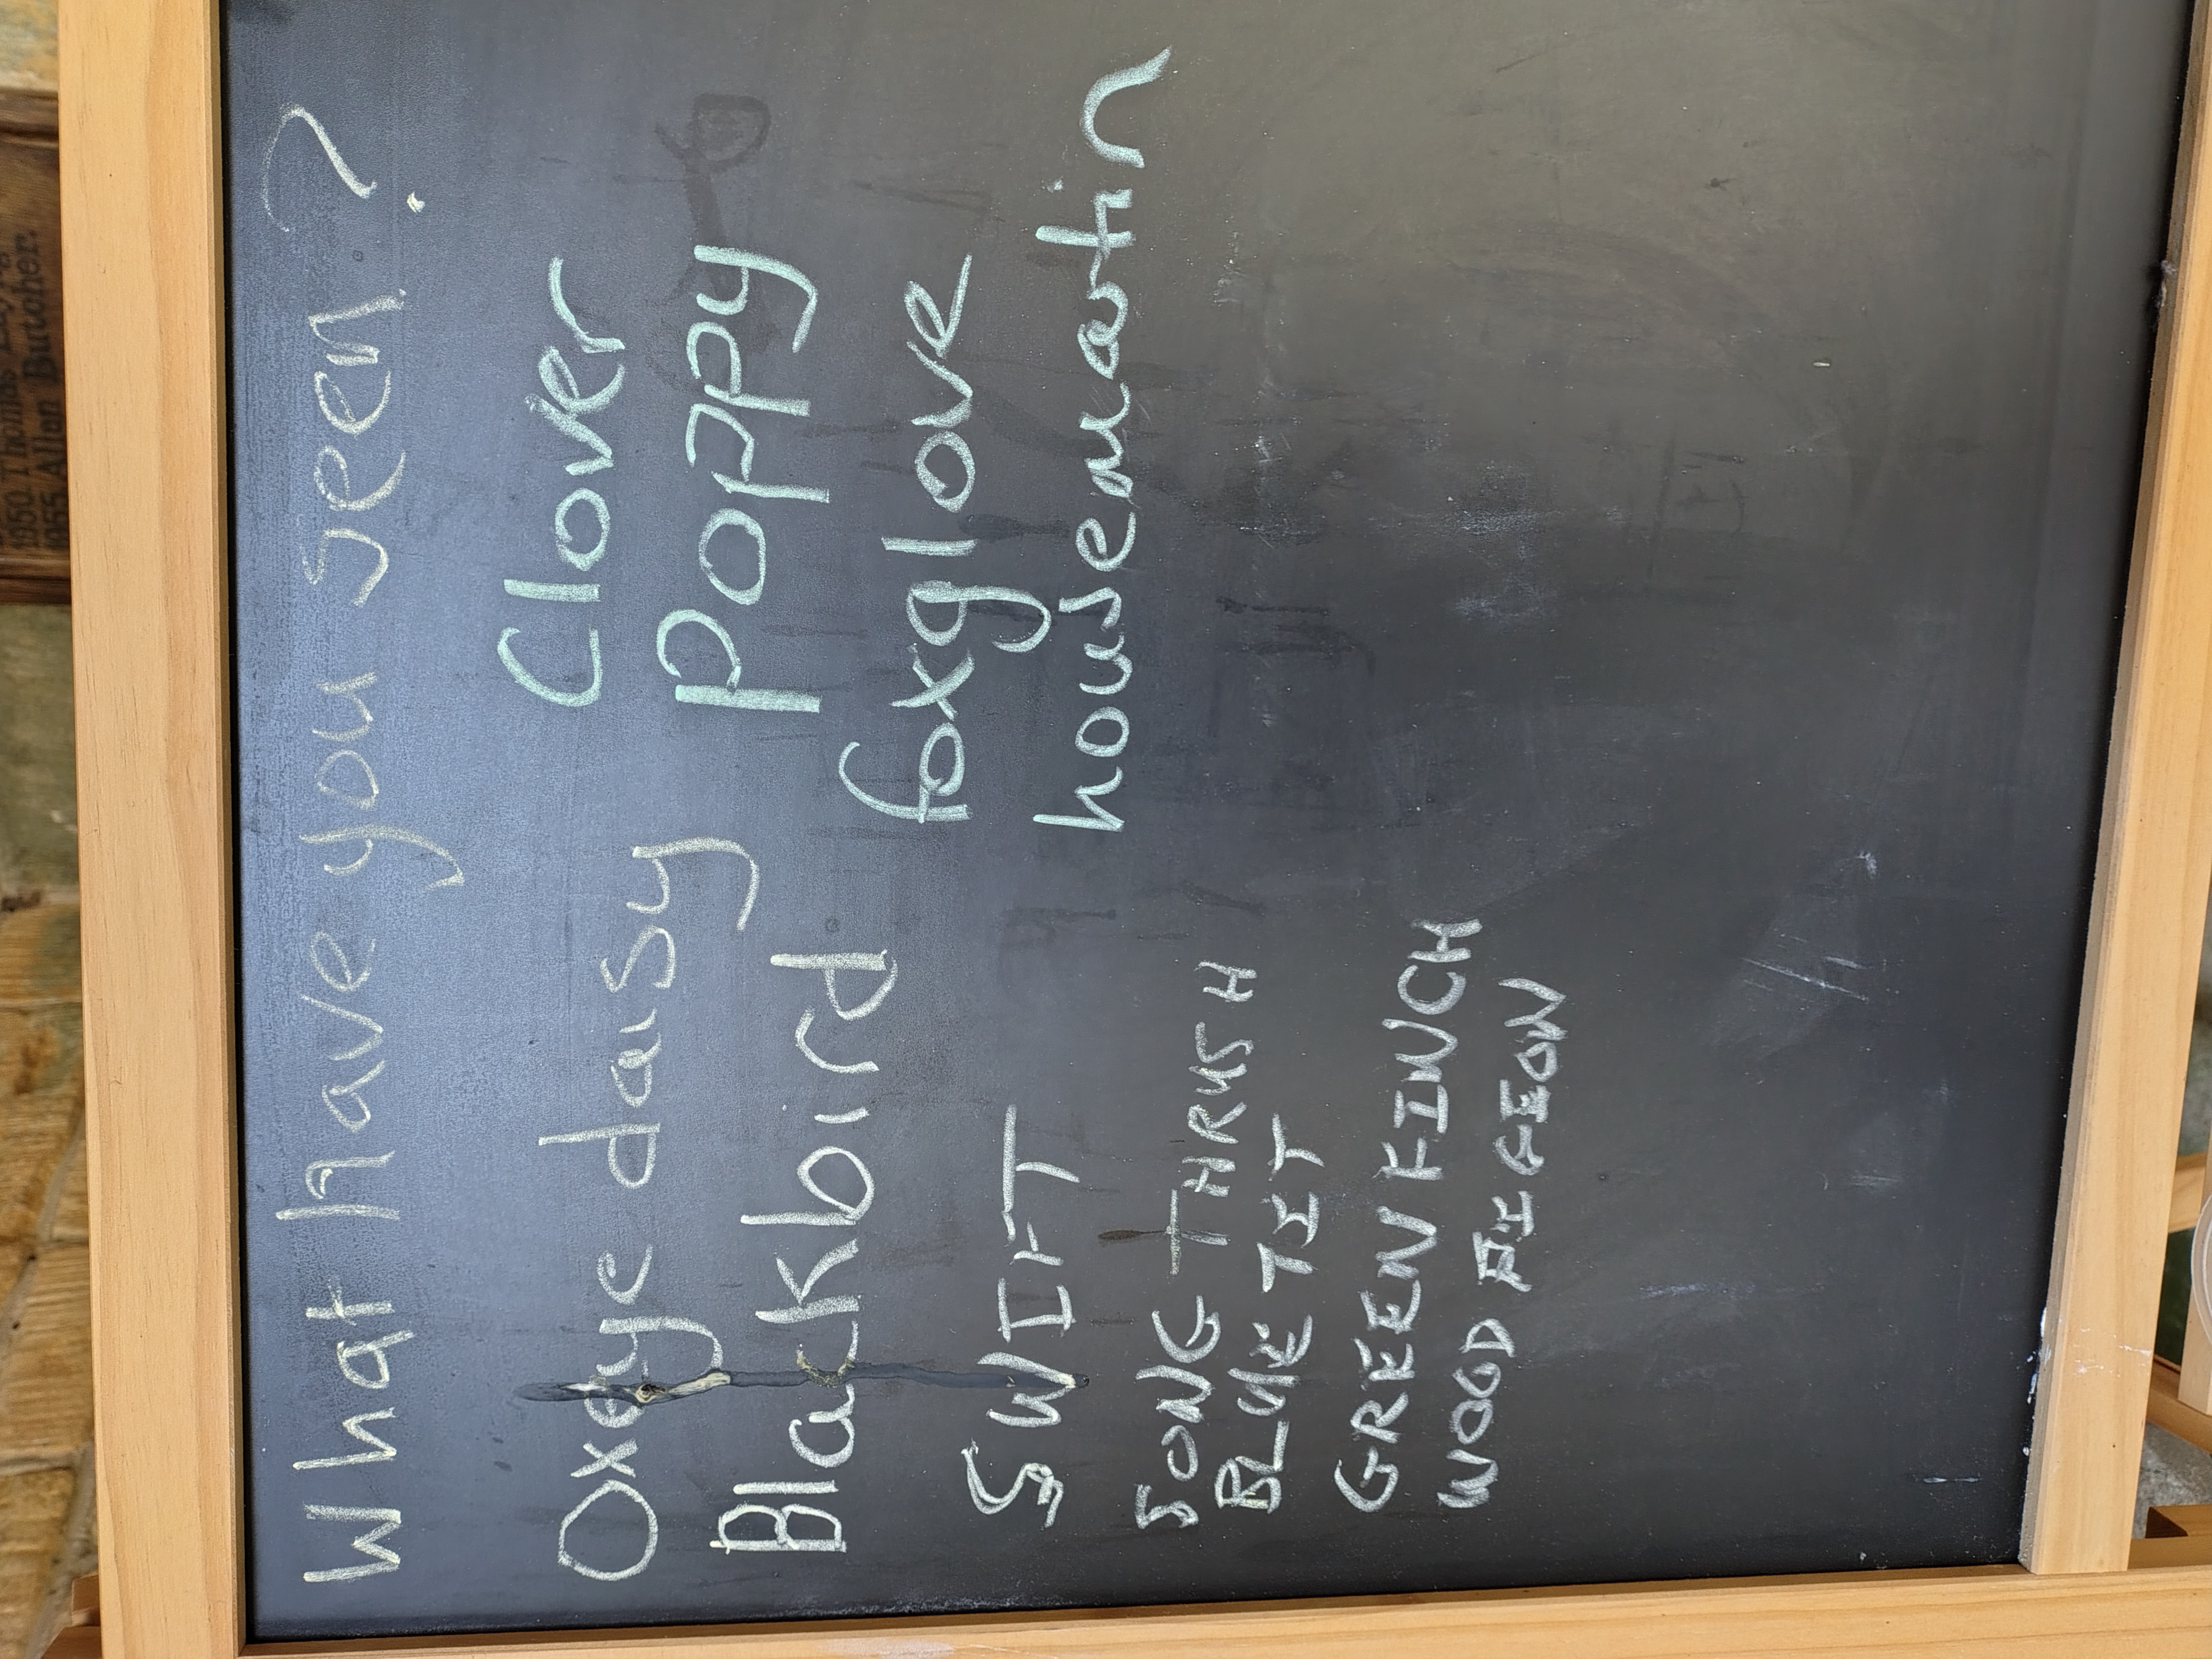 What have you seen?
Oxeye daisy
Blackbird
SWIFT
SONG THRUSH
BLUE TIT
GREEN FINCH
WOOD PIGEON
Clover
poppy
foxglove
housemartin
1950 Thomas
1955 Allan Butcher.